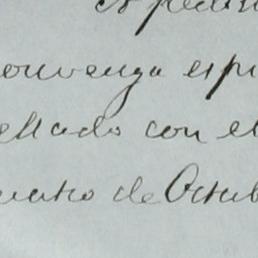 á pedim
convenga espi
ellado con el
uatro de Octub